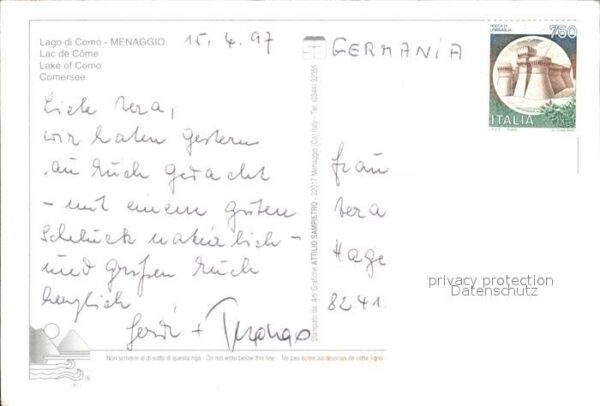 Lago di Como - MENAGGIO
Lac de Côme
Lake of Como
Comersee
15.4.97
GERMANIA
ROCCA DI URBISAGLIA
750
ITALIA
Liebe Vera,
wir haben gestern
an Euch gedacht
- mit einem guten
Schluck natürlich -
und grüßen Euch
herzlich
Gerdi +
Frau
Vera
8241
privacy protection
Datenschutz
Stampato da: Arti Grafiche ATTILIO SAMPIETRO - 22017 Menaggio (Co) Italy - Tel. (0344) 32055
Non scrivere al di sotto di questa riga - Do not write below this line - Ne pas écrire au dessous de cette ligne